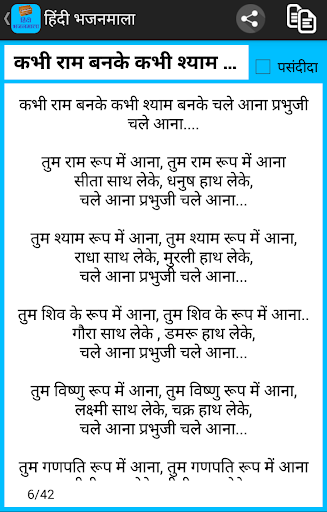 हिंदी भजनमाला
कभी राम बनके कभी श्याम ...
पसंदीदा
कभी राम बनके कभी श्याम बनके चले आना प्रभुजी
चले आना....
तुम राम रूप में आना, तुम राम रूप में आना
सीता साथ लेके, धनुष हाथ लेके,
चले आना प्रभुजी चले आना...
तुम श्याम रूप में आना, तुम श्याम रूप में आना,
राधा साथ लेके, मुरली हाथ लेके,
चले आना प्रभुजी चले आना...
तुम शिव के रूप में आना, तुम शिव के रूप में आना..
गौरा साथ लेके , डमरू हाथ लेके,
चले आना प्रभुजी चले आना...
तुम विष्णु रूप में आना, तुम विष्णु रूप में आना,
लक्ष्मी साथ लेके, चक्र हाथ लेके,
चले आना प्रभुजी चले आना...
तुम गणपति रूप में आना, तुम गणपति रूप में आना
6/42